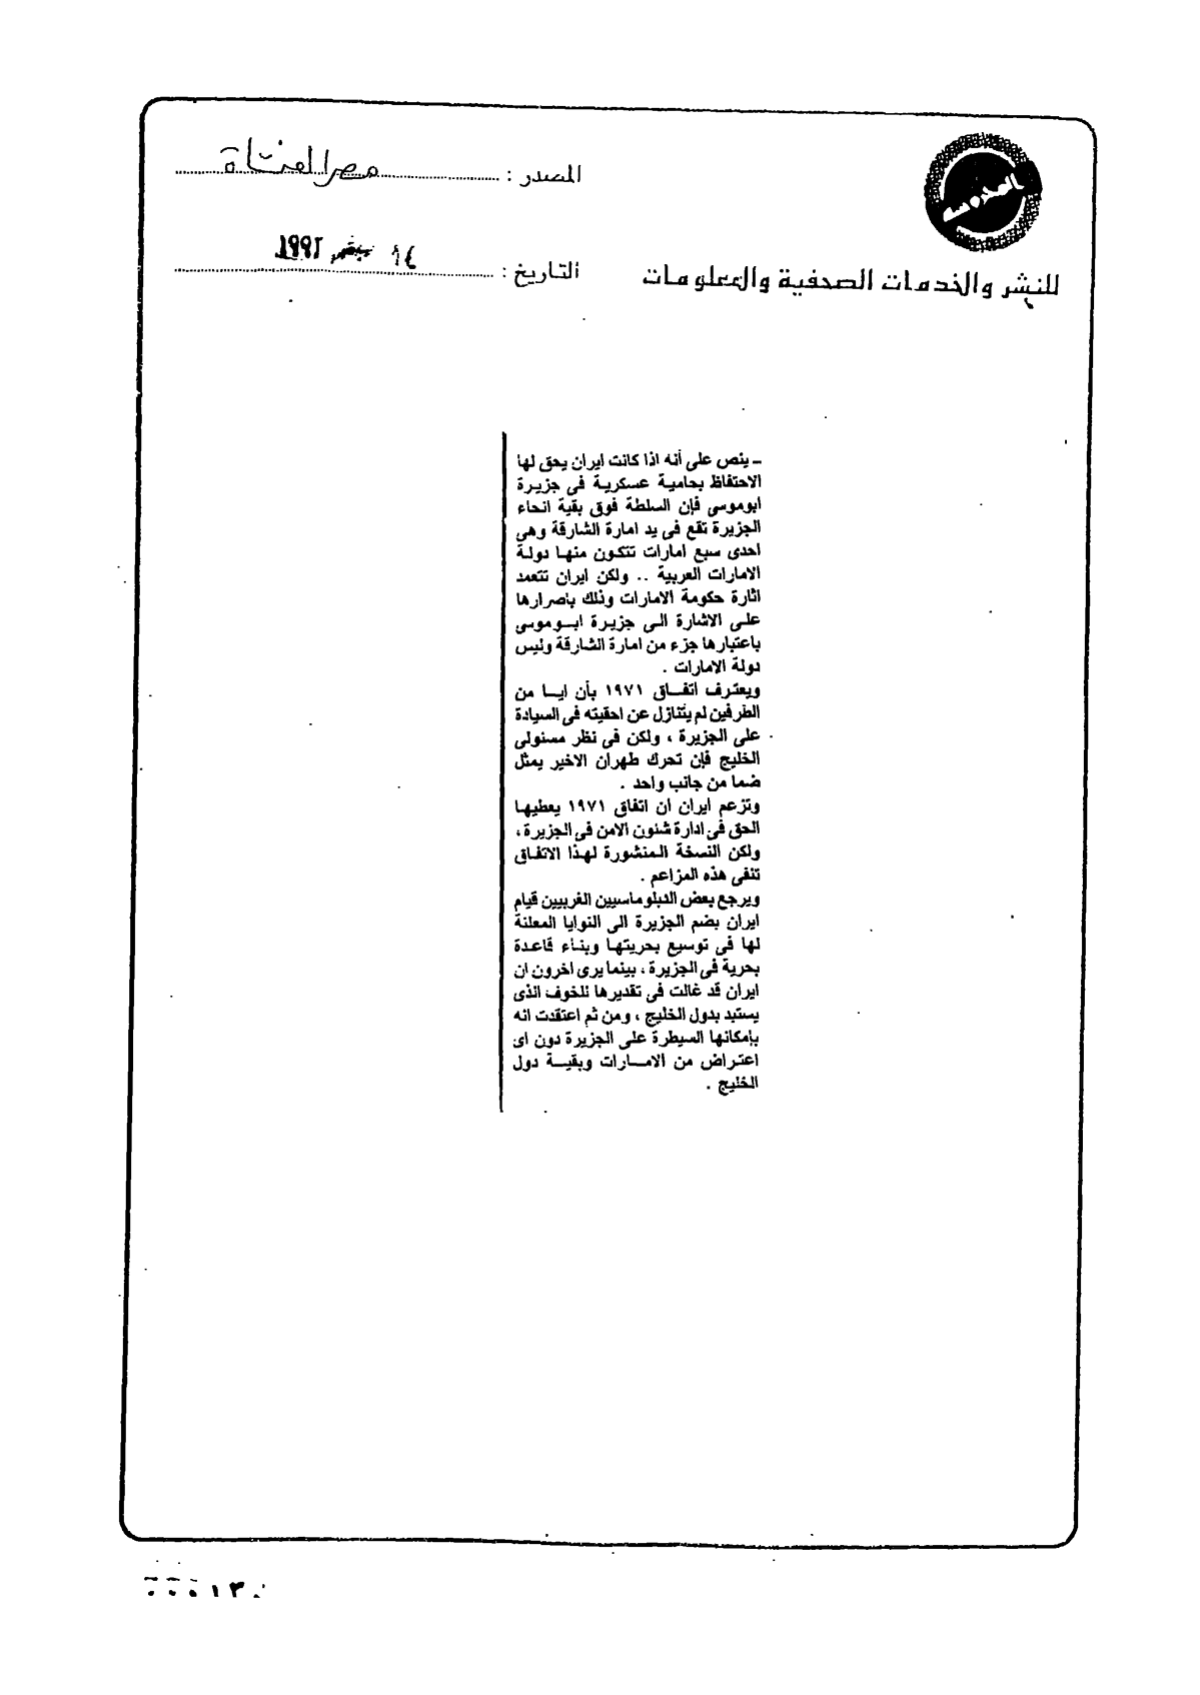 المصدر : مصر الفتاة
التاريخ : ١٤ سبتمبر ١٩٩٢
للنشر والخدمات الصحفية والمعلومات
ـ ينص على أنه اذا كانت ايران يحق لها
الاحتفاظ بحامية عسكرية فى جزيرة
ابوموسى فإن السلطة فوق بقية انحاء
الجزيرة تقع فى يد امارة الشارقة وهى
احدى سبع امارات تتكون منها دولة
الامارات العربية .. ولكن ايران تتعمد
اثارة حكومة الامارات وذلك بأصرارها
على الاشارة الى جزيرة ابوموسى
باعتبارها جزء من امارة الشارقة وليس
دولة الامارات .
ويعترف اتفاق ١٩٧١ بأن ايا من
الطرفين لم يتنازل عن احقيته فى السيادة
على الجزيرة ، ولكن فى نظر مسئولى
الخليج فإن تحرك طهران الاخير يمثل
ضما من جانب واحد .
وتزعم ايران ان اتفاق ١٩٧١ يعطيها
الحق فى ادارة شئون الامن فى الجزيرة ،
ولكن النسخة المنشورة لهذا الاتفاق
تنفى هذه المزاعم .
ويرجع بعض الدبلوماسيين الغربيين قيام
ايران بضم الجزيرة الى النوايا المعلنة
لها فى توسيع بحريتها وبناء قاعدة
بحرية فى الجزيرة ، بينما يرى اخرون ان
ايران قد غالت فى تقديرها للخوف الذى
يستبد بدول الخليج ، ومن ثم اعتقدت انه
بإمكانها السيطرة على الجزيرة دون اى
اعتراض من الامارات وبقية دول
الخليج .